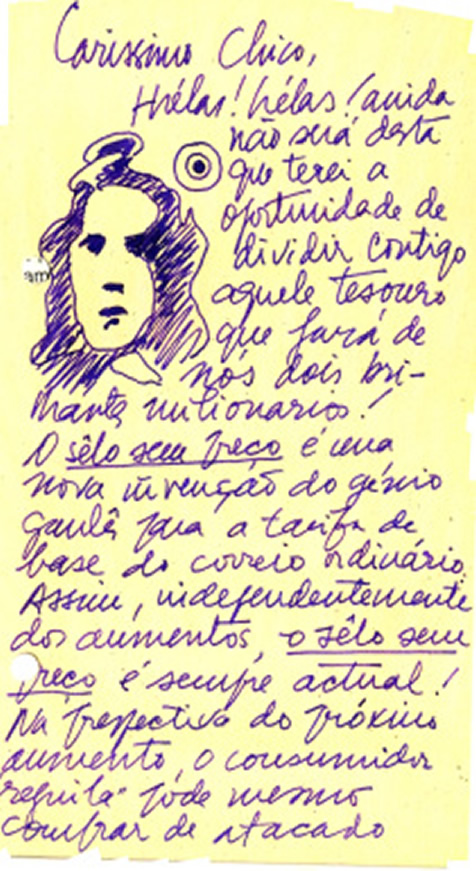 Caríssimo Chico,
Hélas! hélas! ainda
não será desta
que terei a
oportunidade de
dividir contigo
aquele tesouro
que fará de
nós dois bri-
lhantes milionarios!
O sêlo sem preço é uma
nova invenção do génio
gaulês para a tarifa de
base do correio ordinário.
Assim, independentemente
dos aumentos, o sêlo sem
preço é sempre actual!
Na perspectiva do próximo
aumento, o consumidor
reguila pode mesmo
comprar de atacado
am